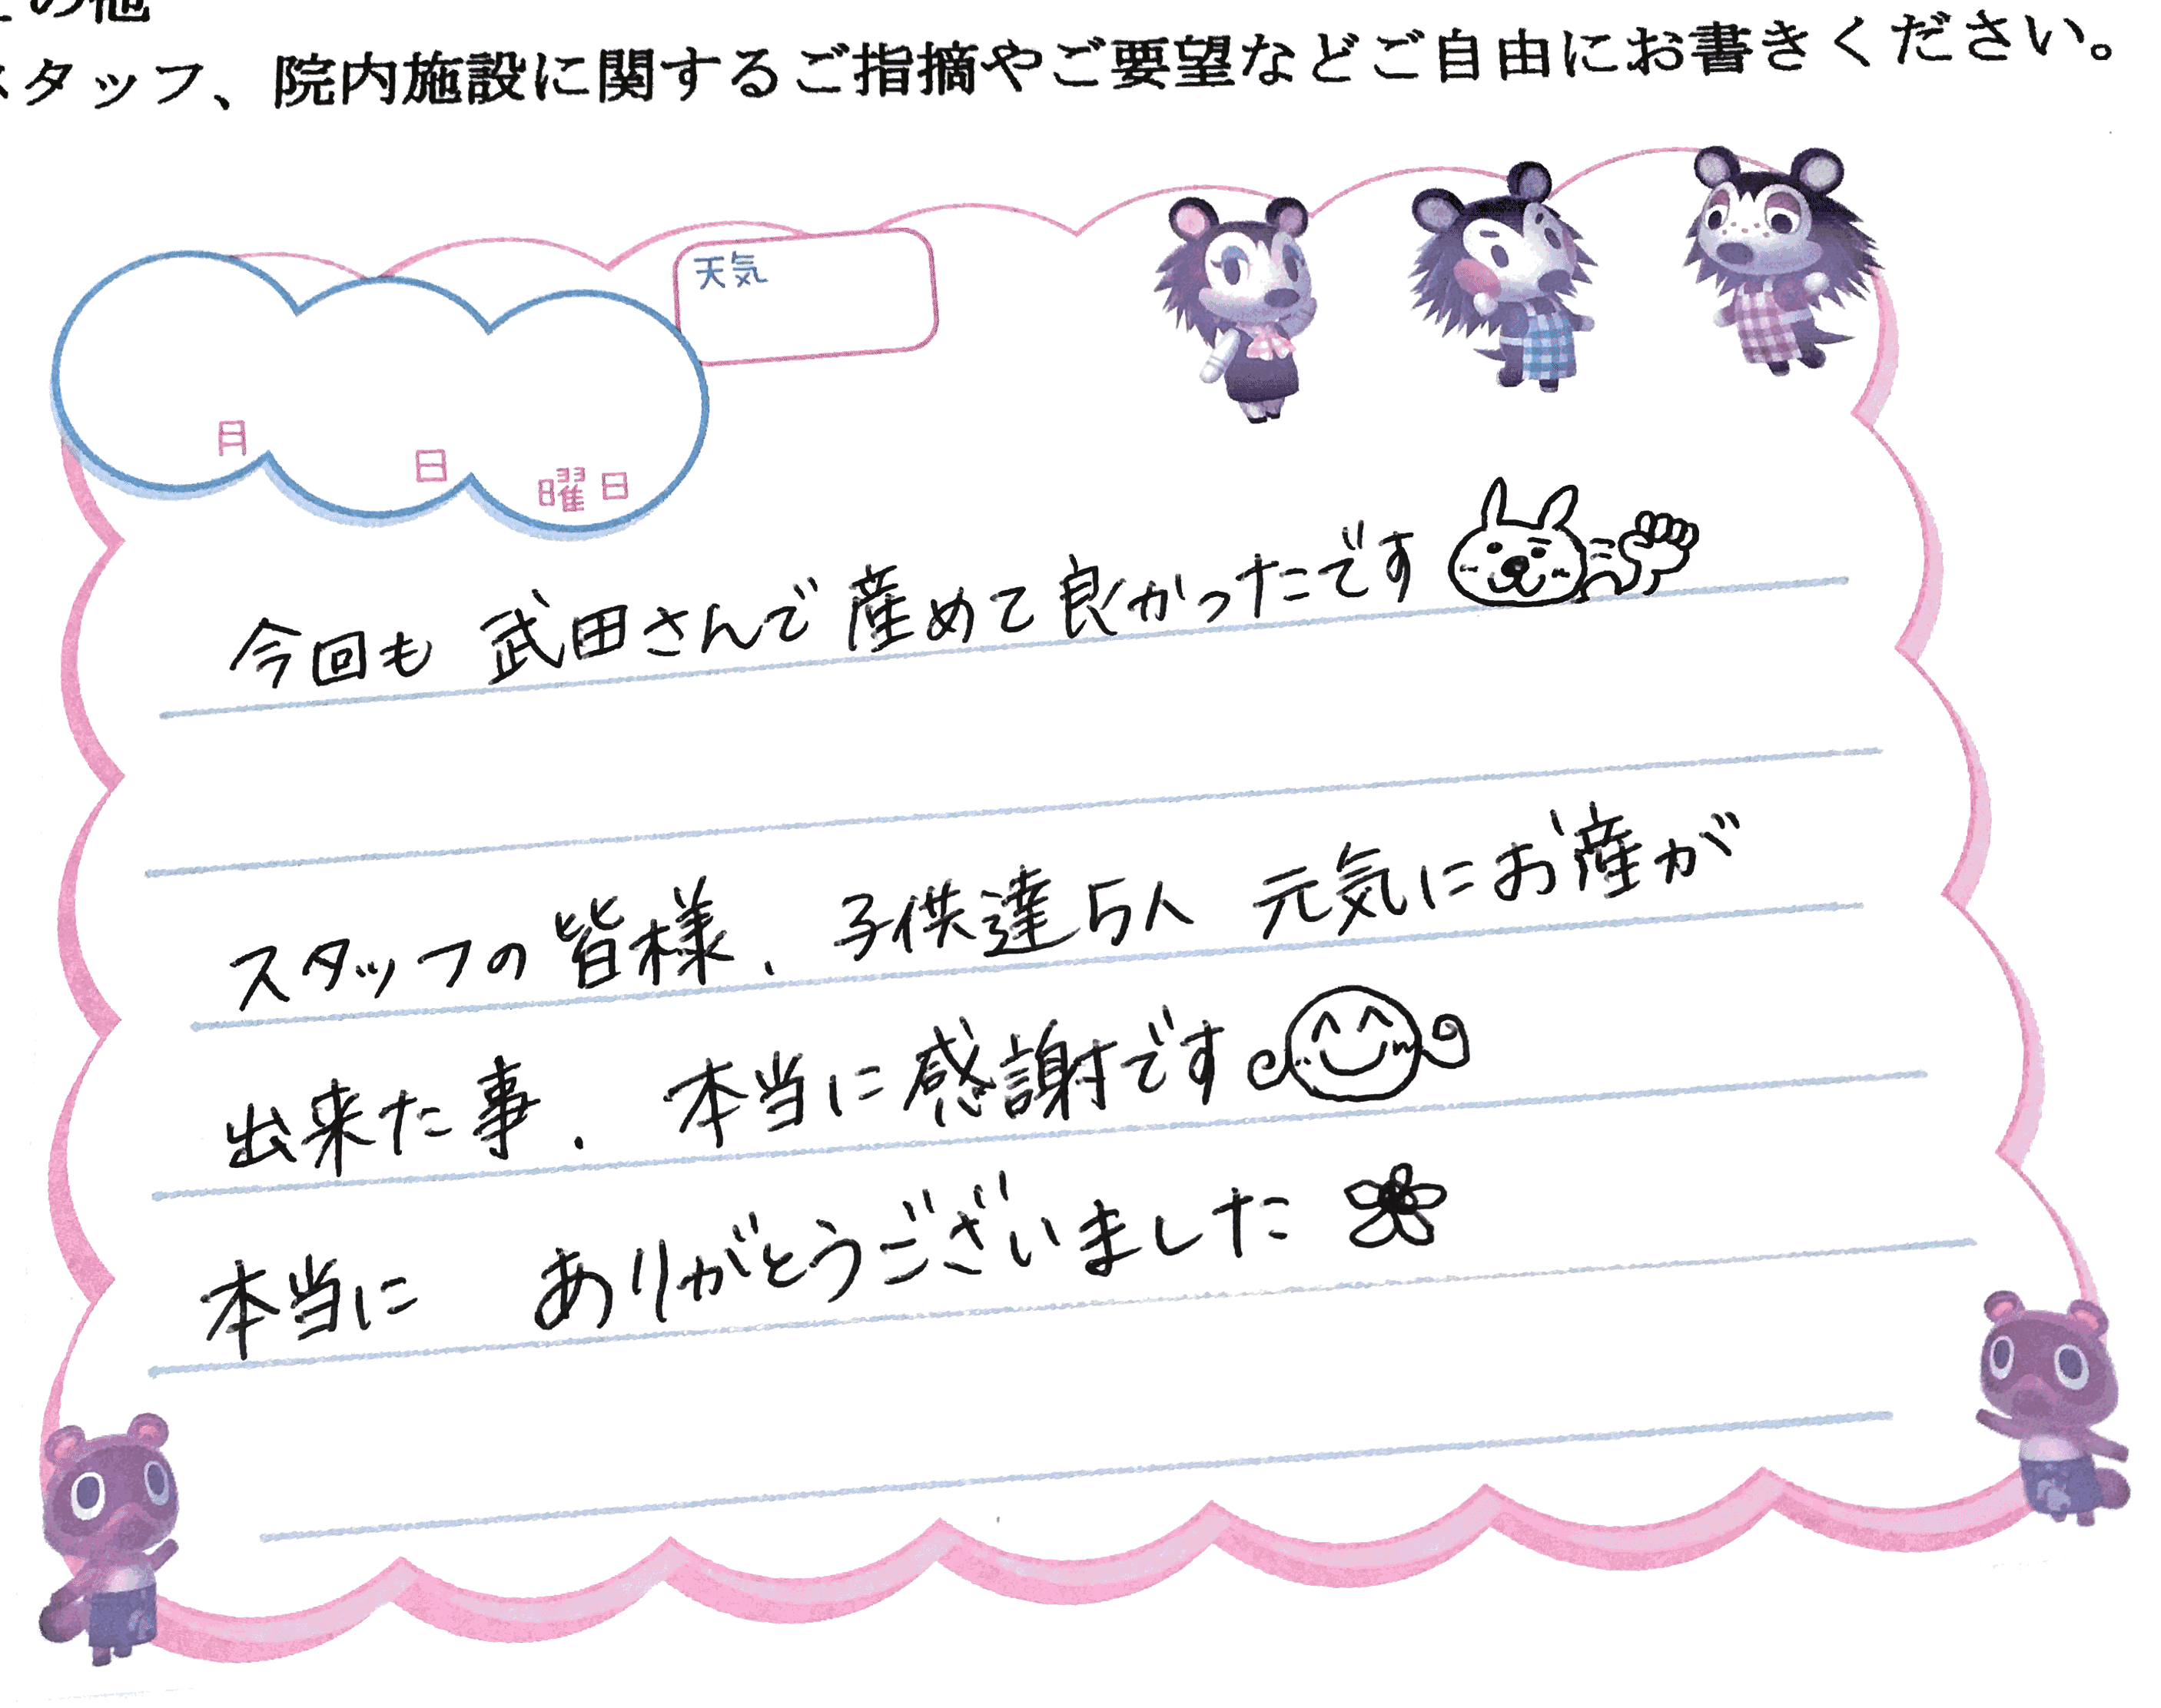 の他
スタッフ、院内施設に関するご指摘やご要望などご自由にお書きください。
天気
月 日 曜日
今回も 武田さんで産めて良かったです
スタッフの皆様、子供達5人 元気にお産が
出来た事、本当に感謝です
本当に ありがとうございました